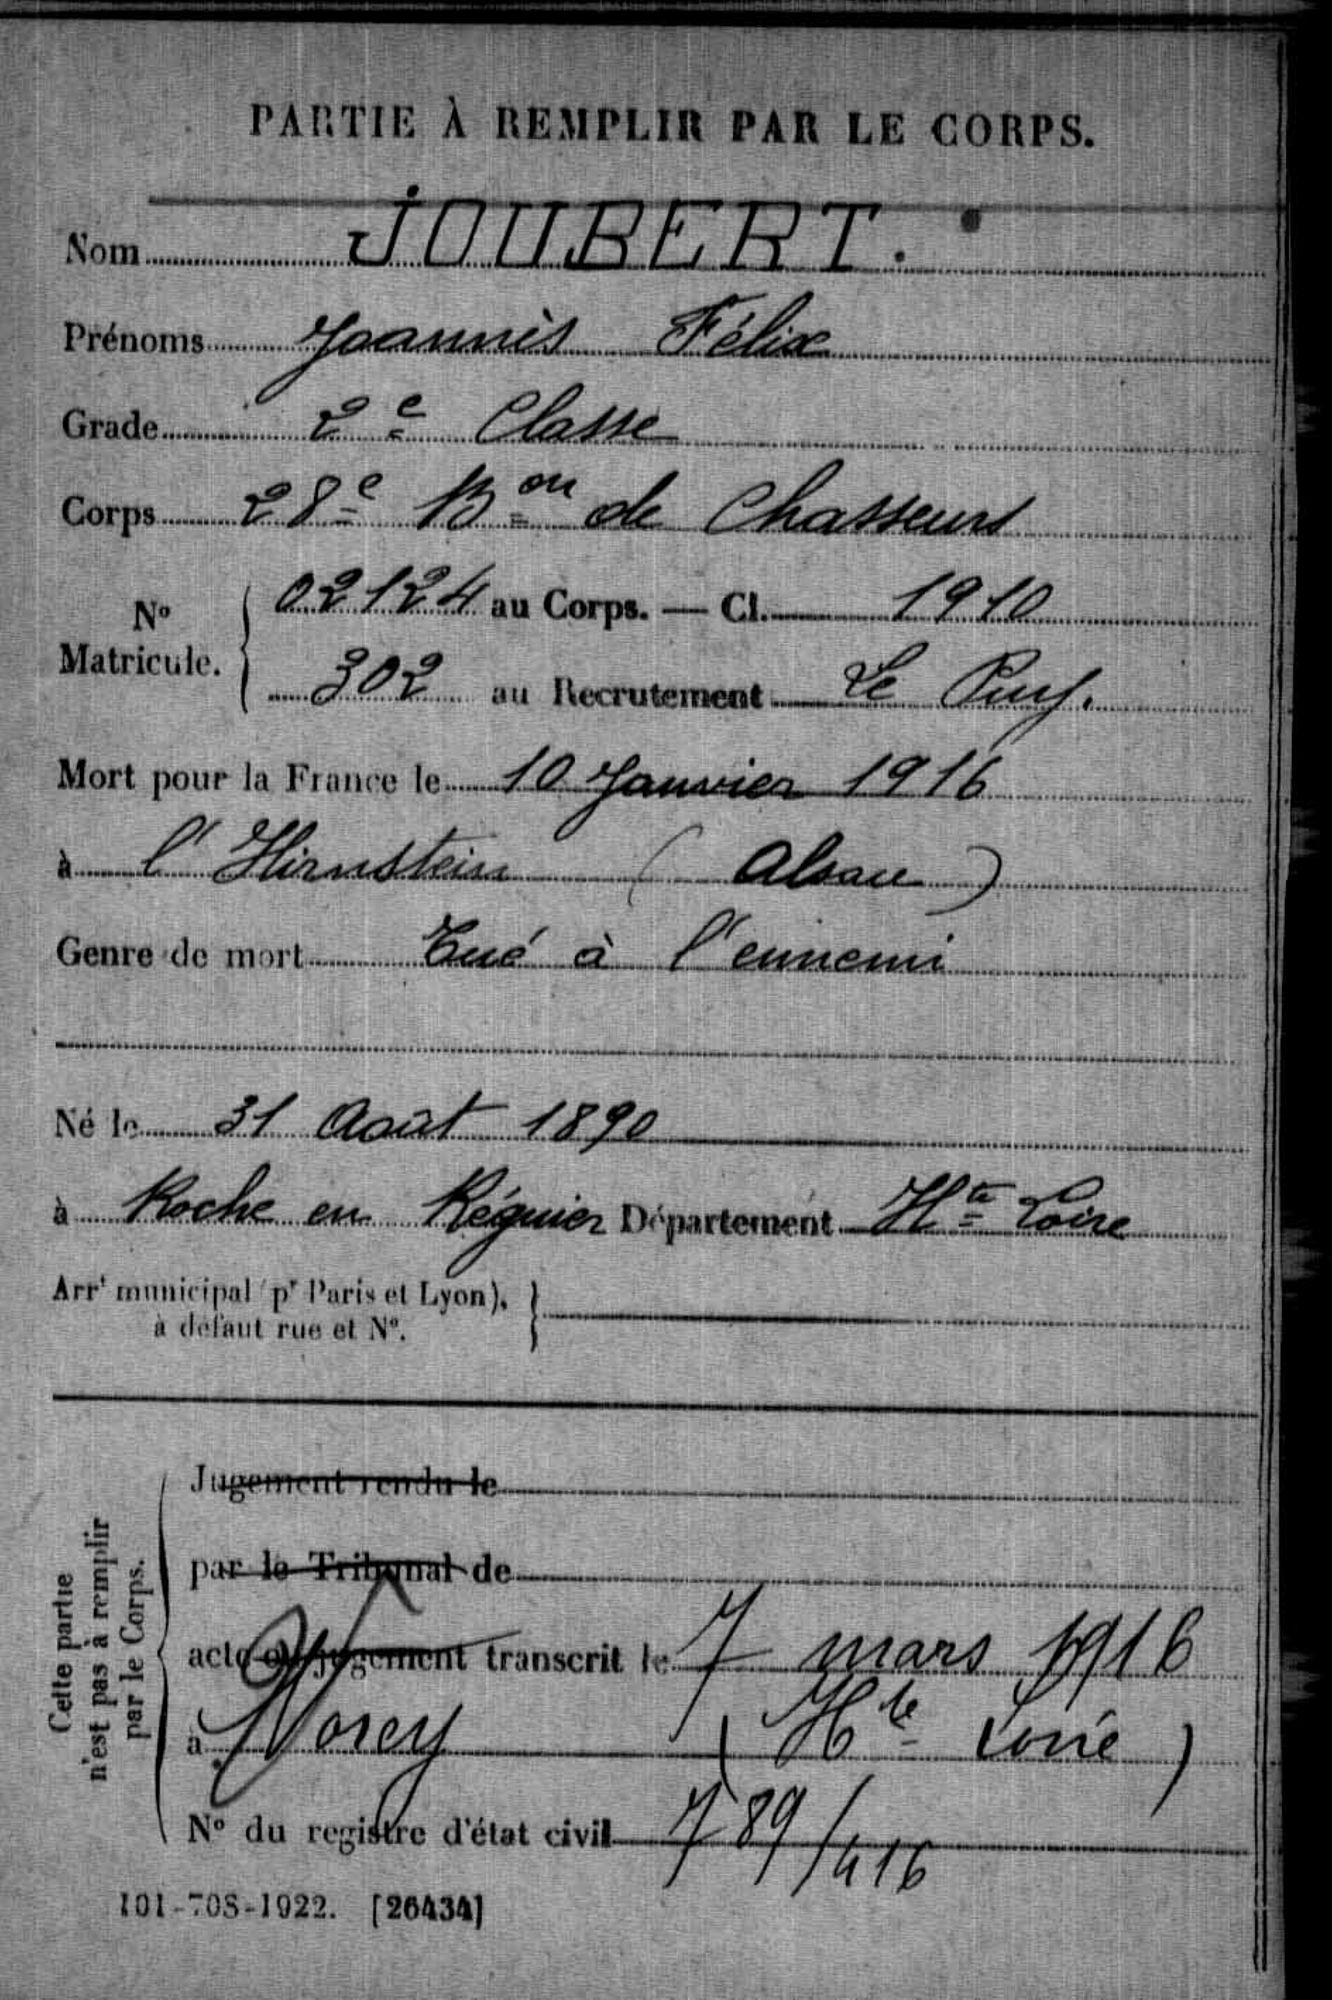 PARTIE À REMPLIR PAR LE CORPS.
Nom JOUBERT.
Prénoms Joannès Félix
Grade 2e Classe
Corps 28e Bon de Chasseurs
No Matricule. { 02124 au Corps. — Cl. 1910
302 au Recrutement Le Puy.
Mort pour la France le 10 Janvier 1916
à l'Hirnstein (Alsace)
Genre de mort Tué à l'ennemi
Né le 31 Août 1890
à Roche en Régnier Département Hte Loire
Arrt municipal (pr Paris et Lyon), à défaut rue et No. }
Cette partie n'est pas à remplir par le Corps.
Jugement rendu le
par le Tribunal de
acte ou jugement transcrit le 7 mars 1916
à Vorey (Hte Loire)
No du registre d'état civil 789/416
101-708-1922. [26434]